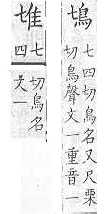 七四切鳥名又尺栗
切鳥聲文一重音一
七
四
切鳥名
文一